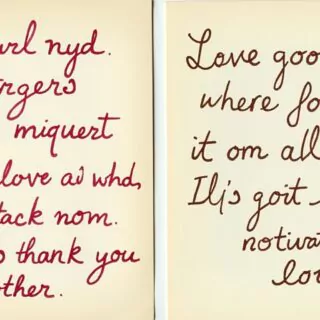 url nyd.
rgers
miquert
love ad whd,
tack nom.
thank you
other.
Love goo
where fo
it om all
goit
notiva
lov